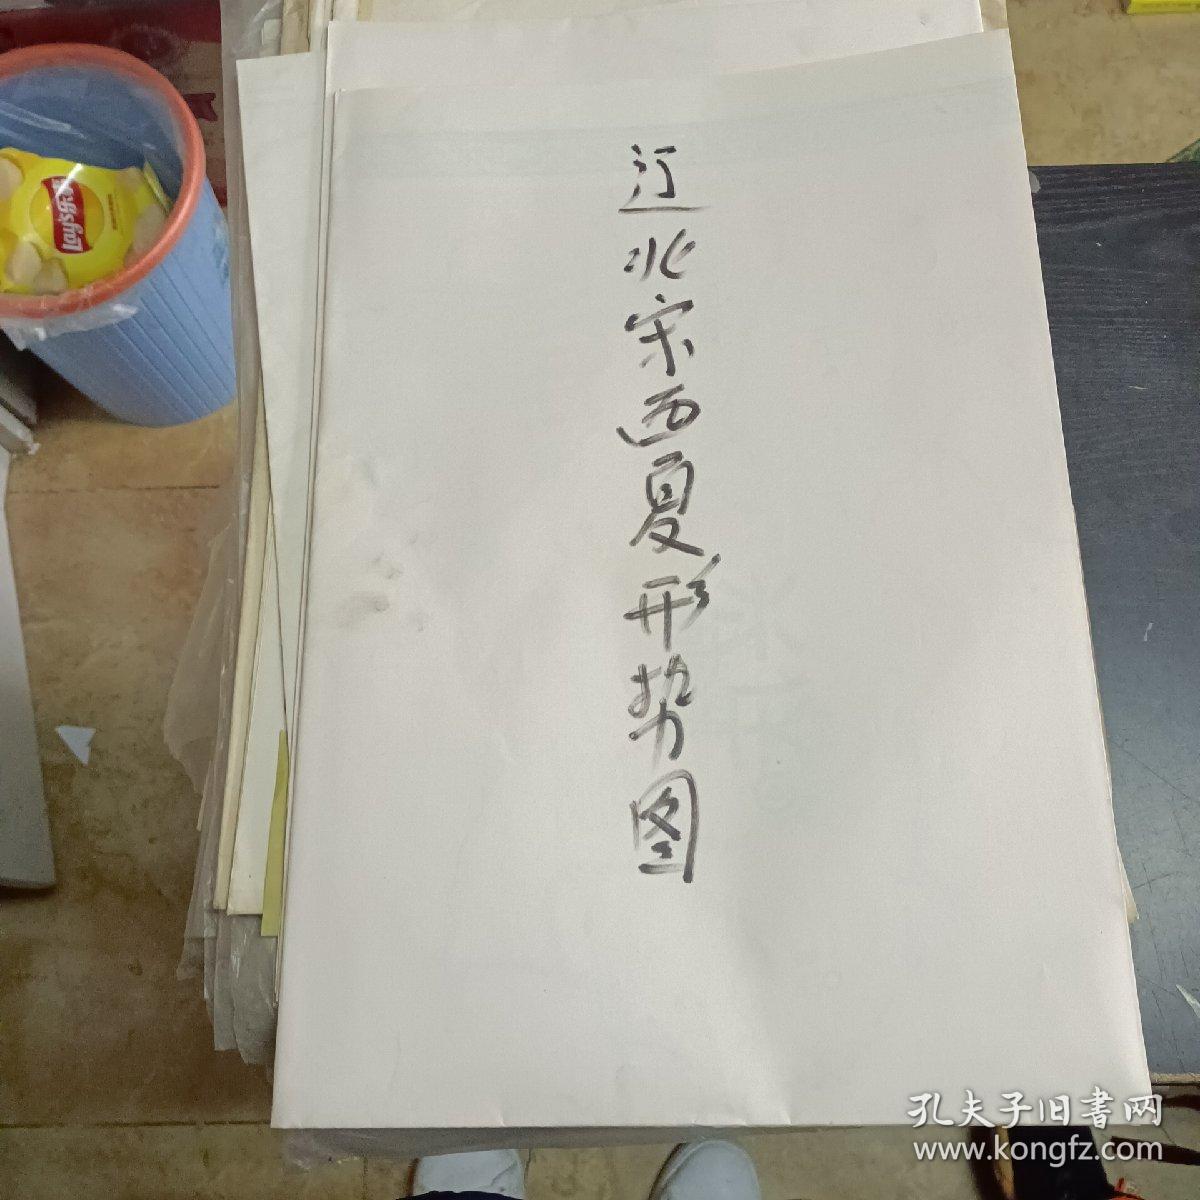 辽北宋西夏形势图
Lay's乐事
孔夫子旧書网
www.kongfz.com